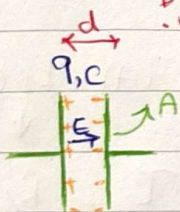 d
q, C
+ -
E
A
+ -
+ -
+ -